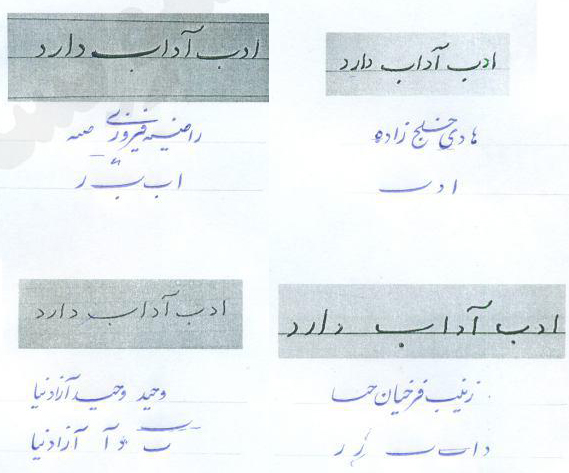 ادب آداب دارد
راضیه فیروزی
اب ب ر
ادب آداب دارد
هادی خلج زاده
ا د ب
ادب آداب دارد
وحید وحید آزادنیا
ب د آ آزادنیا
ادب آداب دارد
زینب فرخیان
د ا ر ر